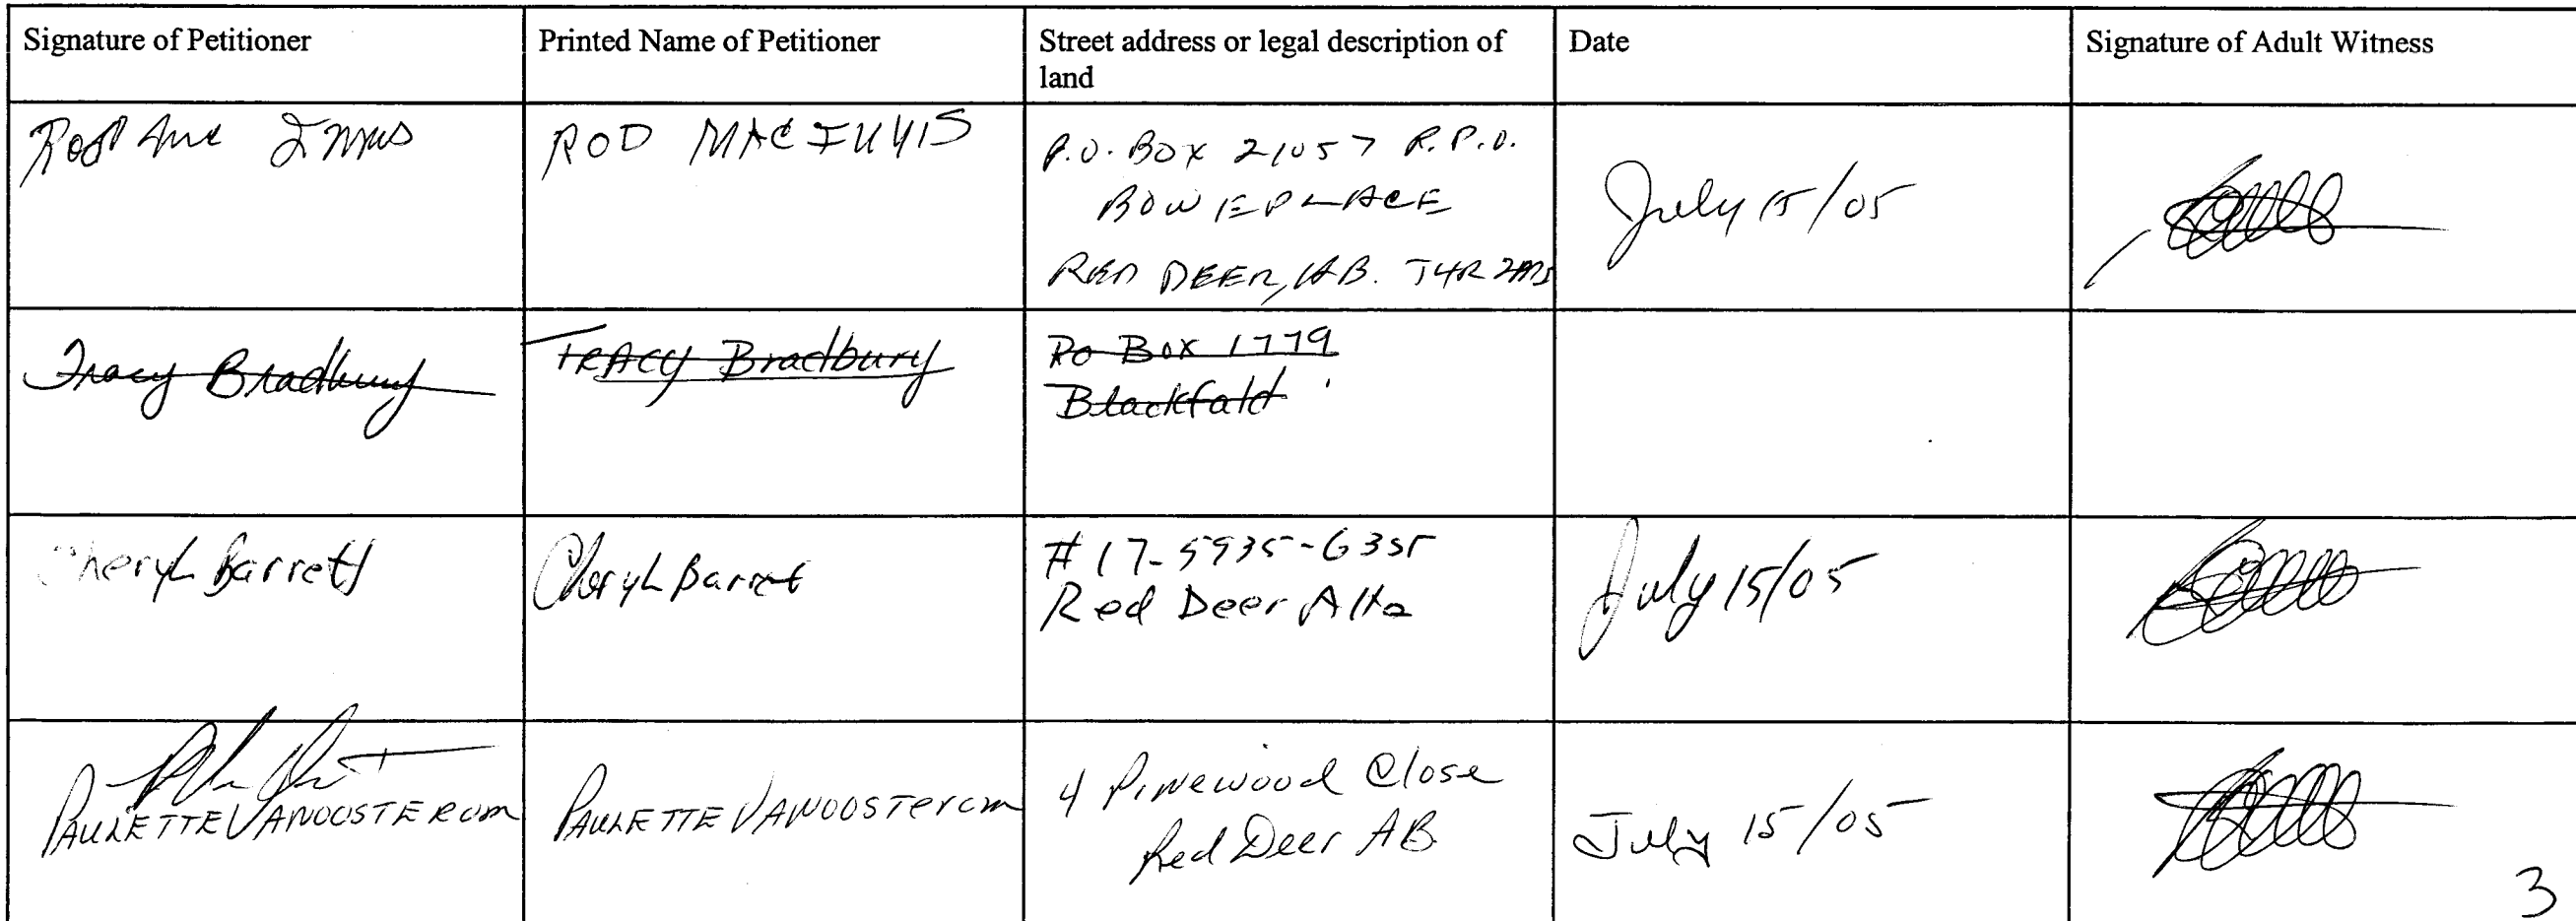 Signature of Petitioner
Printed Name of Petitioner
Street address or legal description of
land
Date
Signature of Adult Witness
ROD MACINNIS
P.O. BOX 21057 R.P.O.
BOWER PLACE
RED DEER, AB. T4R 2M1
July 15/05
Tracy Bradbury
TRACY Bradbury
Po Box 1779
Blackfald
Cheryl Barrett
Cheryl Barret
#17-5935-63st
Red Deer Alta
July 15/05
PAULETTE VANOOSTEROM
PAULETTE VANOOSTEROM
4 Pinewood Close
Red Deer AB
July 15/05
3